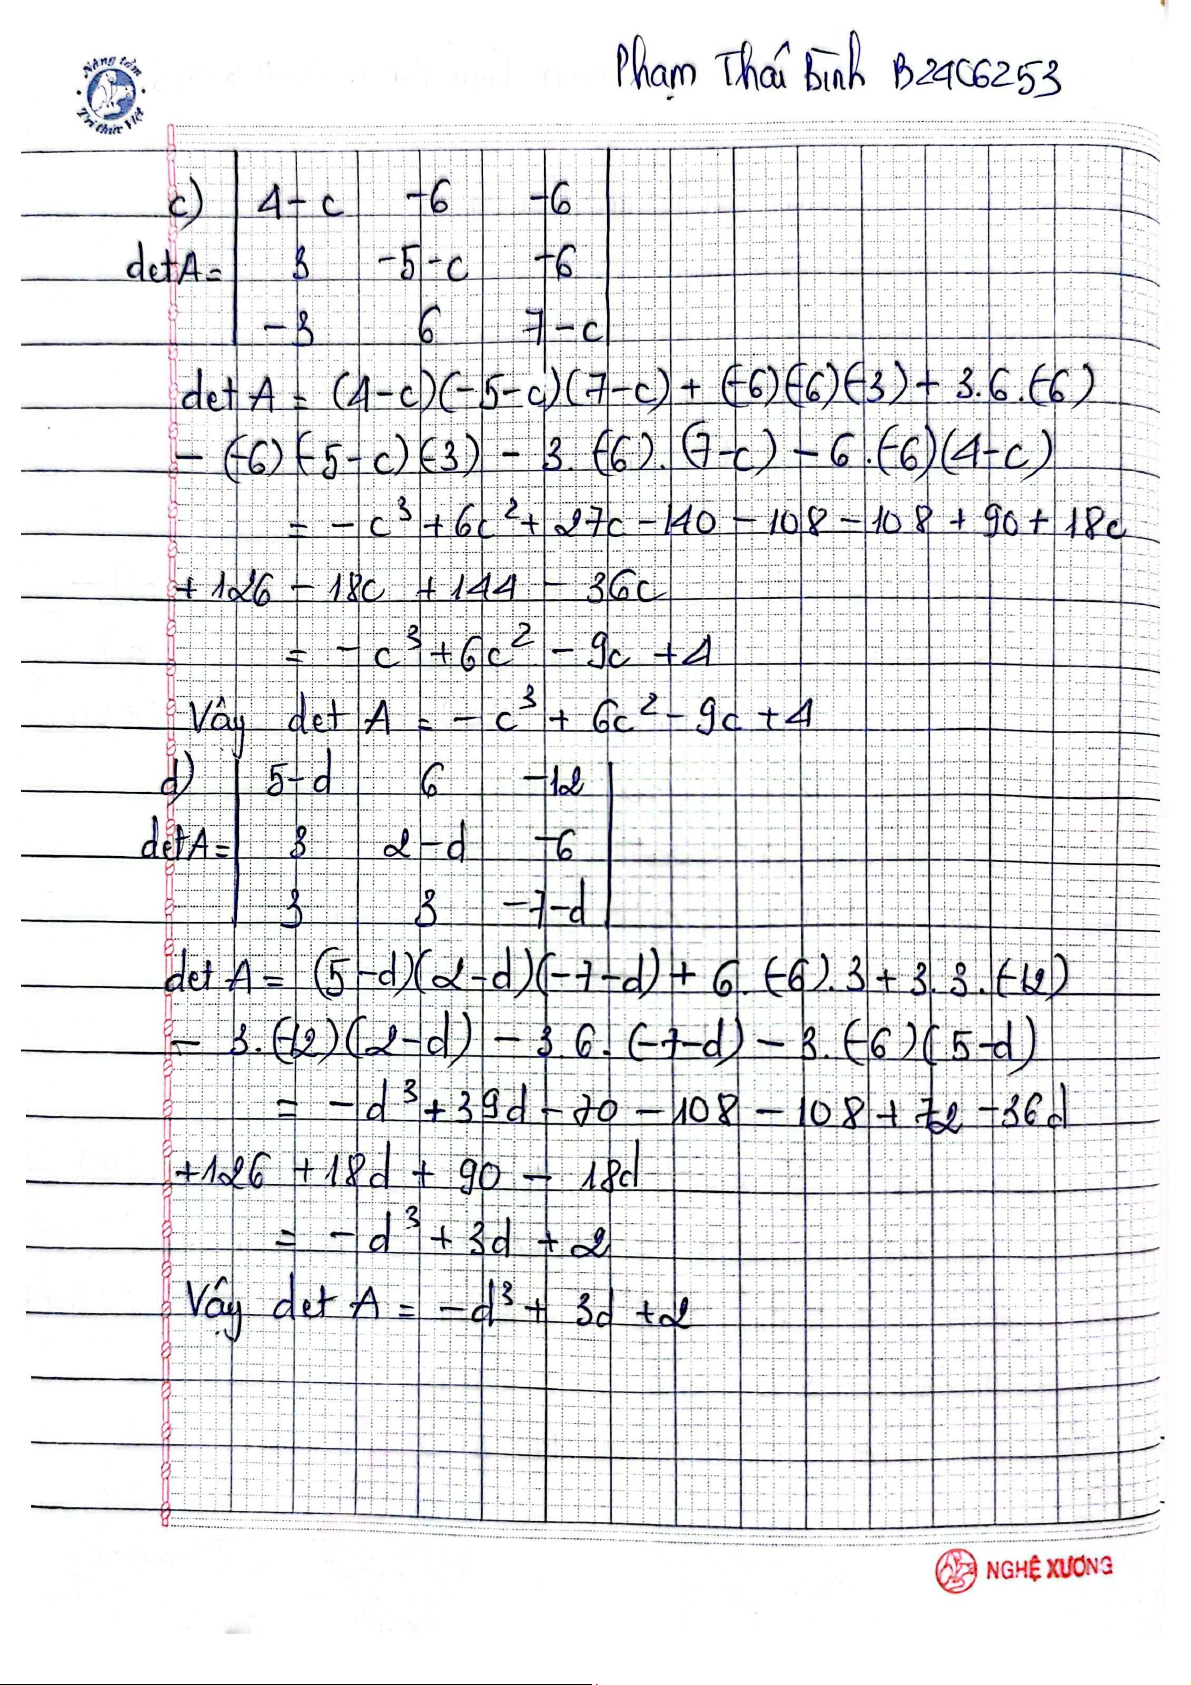 Nâng tầm
Tri thức Việt
Phạm Thái Bình B24C6253
c) | 4-c -6 -6 |
det A = | 3 -5-c -6 |
| -3 6 7-c |
det A = (4-c)(-5-c)(7-c) + (-6)(-6)(-3) + 3.6.(-6)
- (-6)(-5-c)(-3) - 3.(-6).(7-c) - 6.(-6)(4-c)
= -c³ + 6c² + 27c - 140 - 108 - 108 + 90 + 18c
+ 126 - 18c + 144 - 36c
= -c³ + 6c² - 9c + 4
Vây det A = -c³ + 6c² - 9c + 4
d) | 5-d 6 -12 |
det A = | 3 2-d -6 |
| 3 3 -7-d |
det A = (5-d)(2-d)(-7-d) + 6.(-6).3 + 3.3.(-12)
- 3.(-12)(2-d) - 3.6.(-7-d) - 3.(-6)(5-d)
= -d³ + 39d - 70 - 108 - 108 + 72 - 36d
+126 + 18d + 90 - 18d
= -d³ + 3d + 2
Vậy det A = -d³ + 3d + 2
NGHỆ XƯƠNG